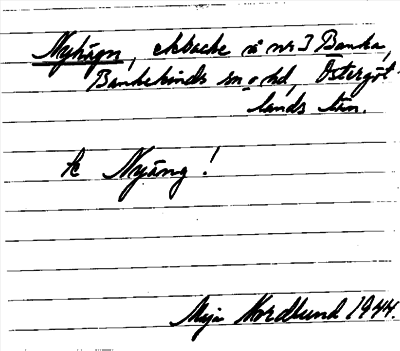 Nyhagn, ekbacke å nr 3 Banka,
Bankekinds sn o hd, Östergöt-
lands län.
Se Nyäng!
Maja Nordlund 1944.